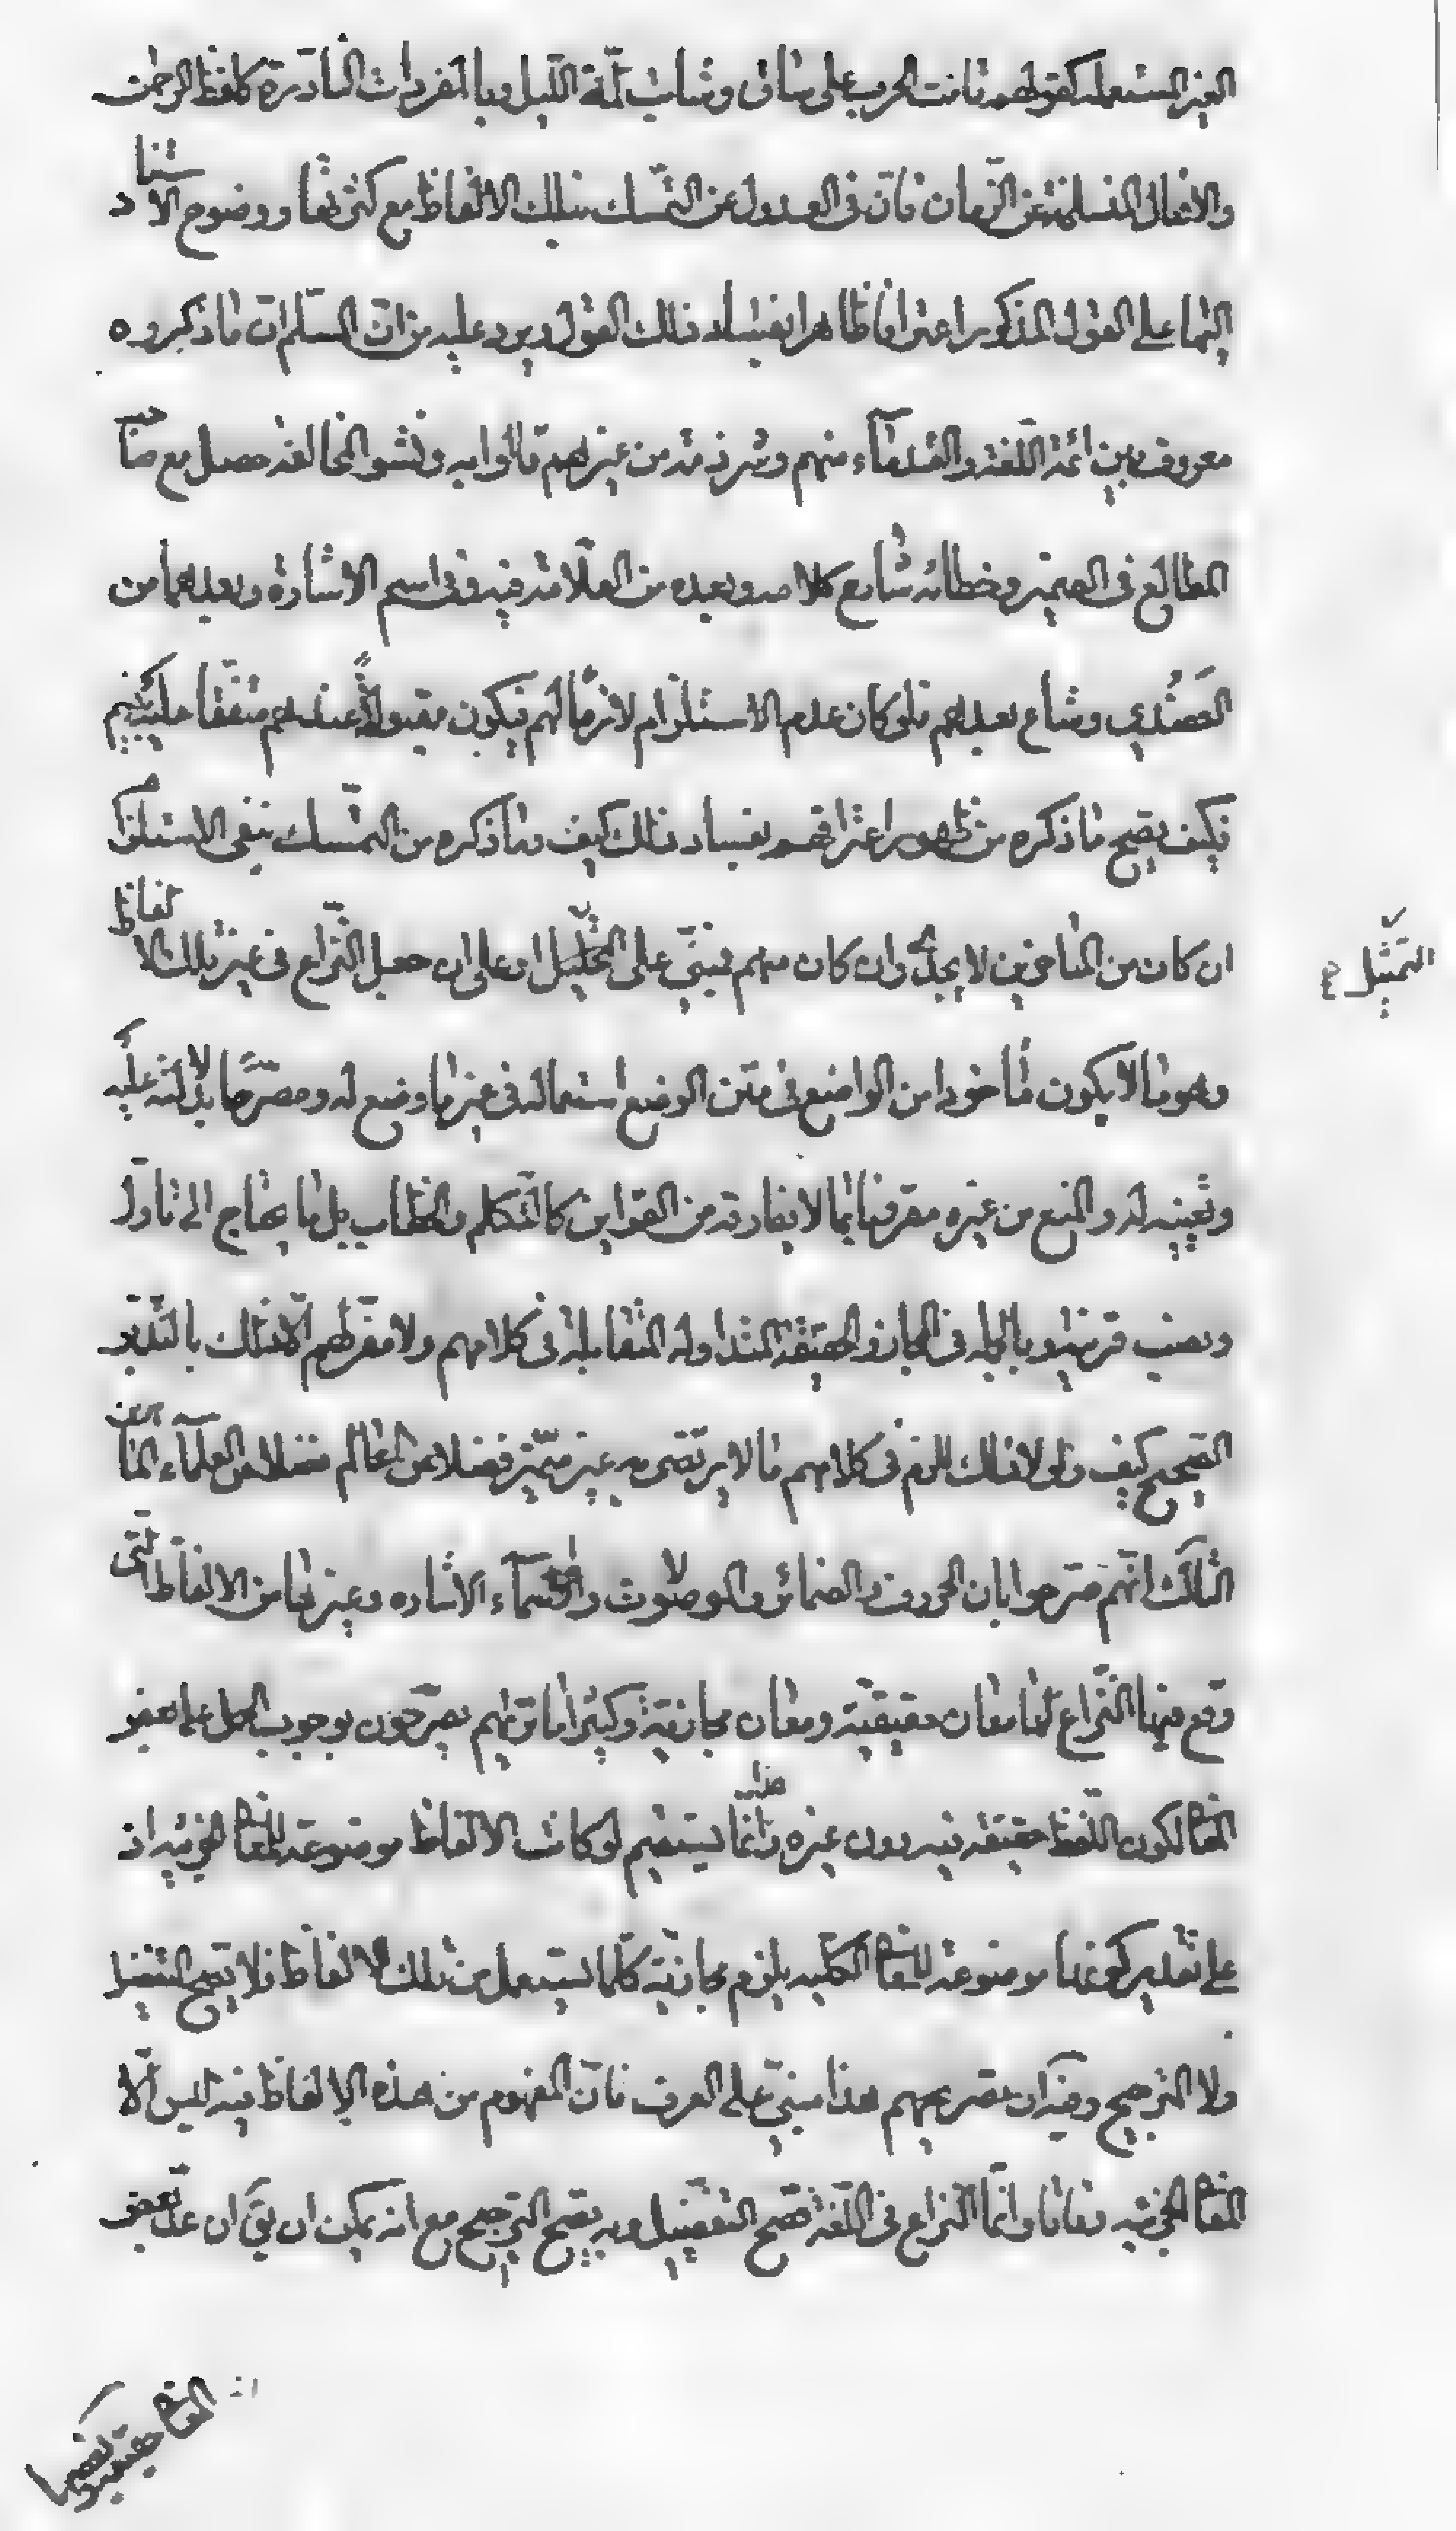 الغير المستعملة كقولهم قامت الحرب على ساق وشابت لمّة الليل وبالمفردات النادرة كلفظ الرحمن
والافعال المنسلخة عن الزمان فانّ فى العدول عن التمسّك بتلك الالفاظ مع كثرتها ووضوح الاستناد
اليها على القول المذكور اعترافا ظاهرا بفساد ذلك القول ويرد عليه من انّ المسلم انّ ما ذكروه
معروف بين ائمّة اللّغة والقدمآء منهم وشرذمة من غيرهم قالوا به وفشو المخالفة حصل مع صاحب
المطالع فى الضمير وخطائه شارع كلامه وبعده من العلّامة فيه وفى اسم الاشارة وبعدهما من
العضُدي وشاع بعدهم فلو كان عدم الاستلزام لازمًا لهم فيكون مقبولًا عندهم متفقا عليه بينهم
فكيف يصح ما ذكره من ظهور اعترافهم بفساد ذلك كيف وما ذكره من التمسّك بنفى الاستلزام
ان كان من المتاخرين لا يجدى وان كان منهم فيبتنى على التخييل او على ان جعل النّزاع فى غير تلك الالفاظ
التمثيل
وهو ما لا يكون مأخوذا من الواضع فى متن الوضع استعماله فى غير ما وضع له ومصرّحًا بدلالته عليه
وتعيينه له والمنع من غيره مقرونا بما لا يفارقه من القراين كالتكلم والخطاب بل ما يحتاج الى تاوّل
ونصب قرينة وبالجملة فى المجاز والحقيقة المتداولة المتقابلة فى كلامهم ولا مفرّ لهم الّا بذلك بالتدبّر
الصّحيح كيف ولو لا ذلك للزم فى كلامهم ما لا يرتضى به غير متميّز فضلا عن العالم فضلا عن العلمآء
الثالث انّهم صرّحوا بان الحروف والضمائر والموصولات واسمآء الاشاره وغيرها من الالفاظ التى
وقع فيها النّزاع لها معان حقيقيّة ومعان مجازيّة وكثيرا ما تريهم يصرّحون بوجوب الحمل على بعض
المعانى لكون اللّفظ حقيقة فيه دون غيره وهذا انّما يستقيم لو كانت الالفاظ موضوعة للمعانى الجزئيه اذ
على تقدير كونها موضوعة للمعانى الكلّيه يلزم مجازيّة كلّما يستعمل من تلك الالفاظ فلا يصح التفضيل
ولا الترجيح وفيه ان تصريحهم هذا مبنىّ على العرف فانّ المفهوم من هذه الالفاظ فيه ليس الّا
المعانى الجزئيّه وفاقا وانّما النّزاع فى اللّغة فصحّ التفضيل وبه يصح الترجيح مع انه يمكن ان يق ان عدّ بعض
المعانى حقيقيّة وبعضها